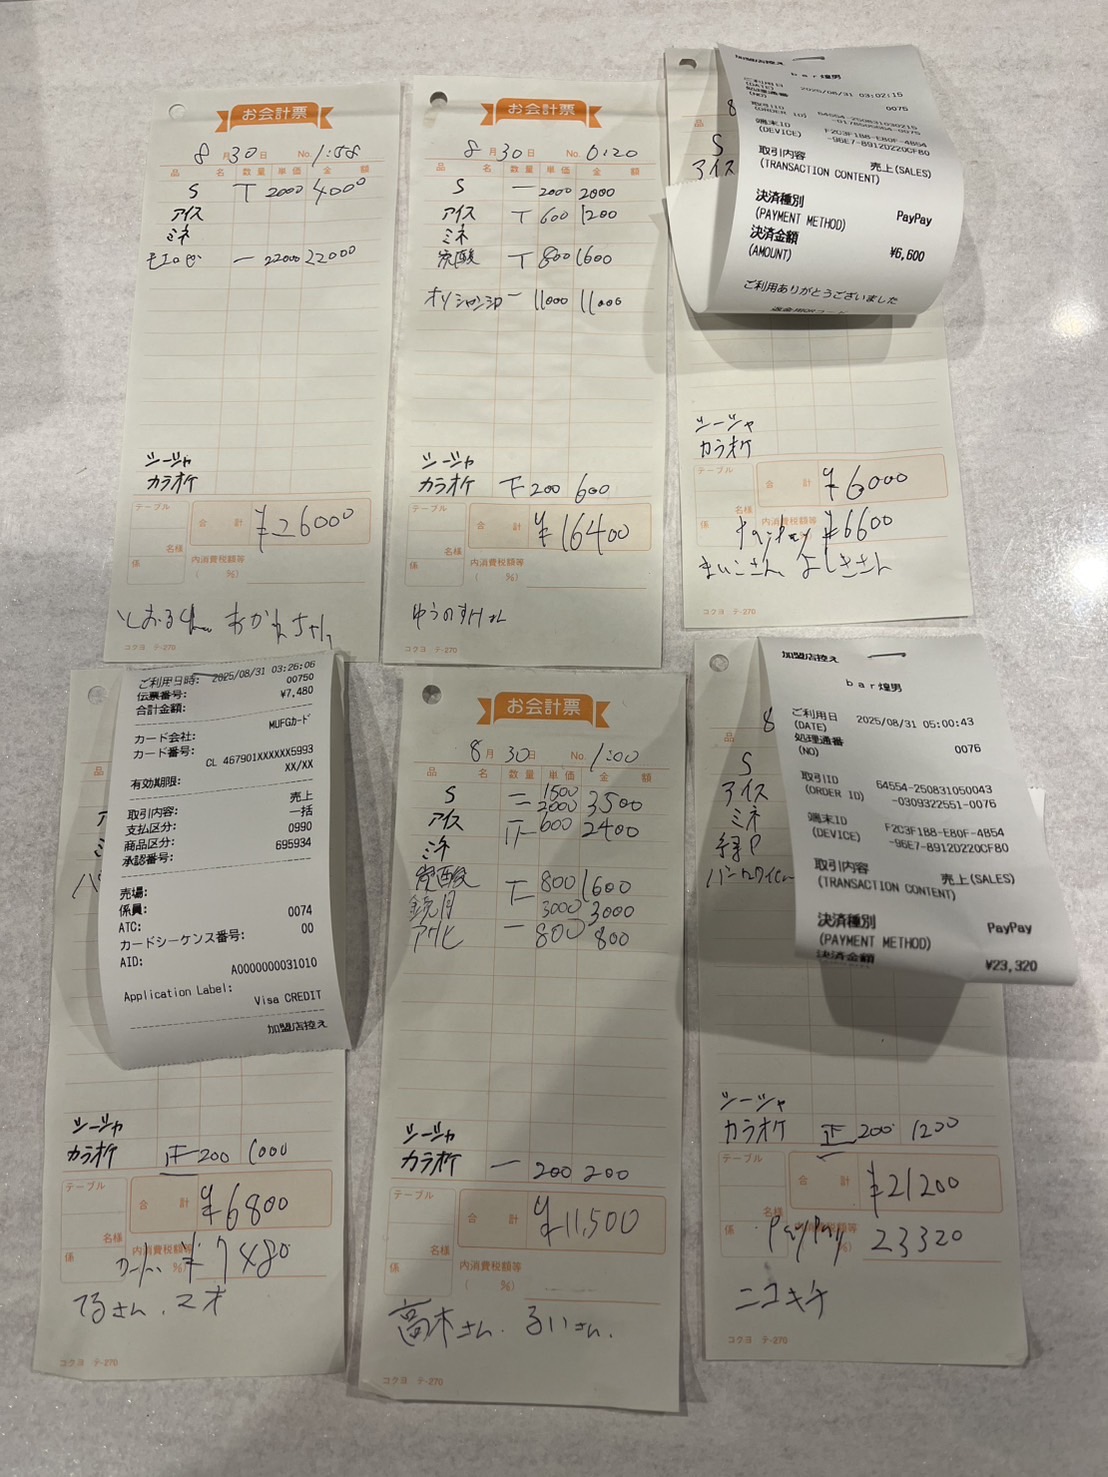 お会計票
8月30日 No. 1:58
品 名 数量 単価 金 額
S T 2000 4000
アイス
ミネ
モエロゼ 一 22000 22000
シーシャ
カラオケ
テーブル
合 計 ¥26000
名様
係
内消費税額等
( %)
とおるくん あかねちゃん
コクヨ テ-270
お会計票
8月30日 No. 0:20
品 名 数量 単価 金 額
S 一 2000 2000
アイス T 600 1200
ミネ
炭酸 T 800 1600
オリシャンシロ 一 11000 11000
シーシャ
カラオケ 下 200 600
テーブル
合 計 ¥16400
名様
係
内消費税額等
( %)
ゆうのすけさん
コクヨ テ-270
加盟店控え
bar煌男
ご利用日
(DATE) 2025/08/31 03:02:15
処理通番
(NO) 0075
取引ID
(ORDER ID) 64554-250831030215
端末ID
(DEVICE) F2C3F188-E80F-4854
-96E7-8912D220CF80
取引内容
(TRANSACTION CONTENT) 売上(SALES)
決済種別
(PAYMENT METHOD) PayPay
決済金額
(AMOUNT) ¥6,600
ご利用ありがとうございました
8
品
S
アイス
シーシャ
カラオケ
テーブル
合 計 ¥6000
名様
係
内消費税額等
PayPay ¥6600
まいこさん よしきさん
コクヨ テ-270
ご利用日時: 2025/08/31 03:26:06
伝票番号: 00750
合計金額: ¥7,480
カード会社: MUFGカード
カード番号:
CL 467901XXXXXX5993
有効期限: XX/XX
取引内容: 売上
支払区分: 一括
商品区分: 0990
承認番号: 695934
売場:
係員:
ATC: 0074
カードシーケンス番号: 00
AID:
A0000000031010
Application Label:
Visa CREDIT
加盟店控え
品
シーシャ
カラオケ 正 200 1000
テーブル
合 計 ¥6800
名様
係
内消費税額等
%)
カード ¥7480
てるさん、マオ
コクヨ テ-270
お会計票
8月30日 No. 1:00
品 名 数量 単価 金 額
S 二 1500
2000 3500
アイス 600 2400
ミネ
炭酸 T 800 1600
鏡月 3000 3000
アサヒ 一 800 800
シーシャ
カラオケ 一 200 200
テーブル
合 計 ¥11,500
名様
係
内消費税額等
( %)
高木さん、るいさん、
コクヨ テ-270
加盟店控え
bar煌男
ご利用日
(DATE) 2025/08/31 05:00:43
処理通番
(NO) 0076
取引ID
(ORDER ID) 64554-250831050043
-0309322551-0076
端末ID
(DEVICE) F2C3F188-E80F-4854
-96E7-8912D220CF80
取引内容
(TRANSACTION CONTENT) 売上(SALES)
決済種別
(PAYMENT METHOD) PayPay
決済金額 ¥23,320
8
品
S
アイス
ミネ
シーシャ
カラオケ 正一 200 1200
テーブル
合 計 ¥21200
名様
係
内消費税額等
%)
PayPay 23320
ニコキチ
コクヨ テ-270